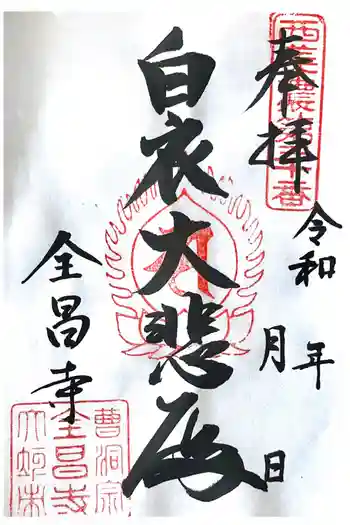 奉拝
令和 年
月 日
白衣大悲殿
全昌寺
曹洞宗
全昌寺